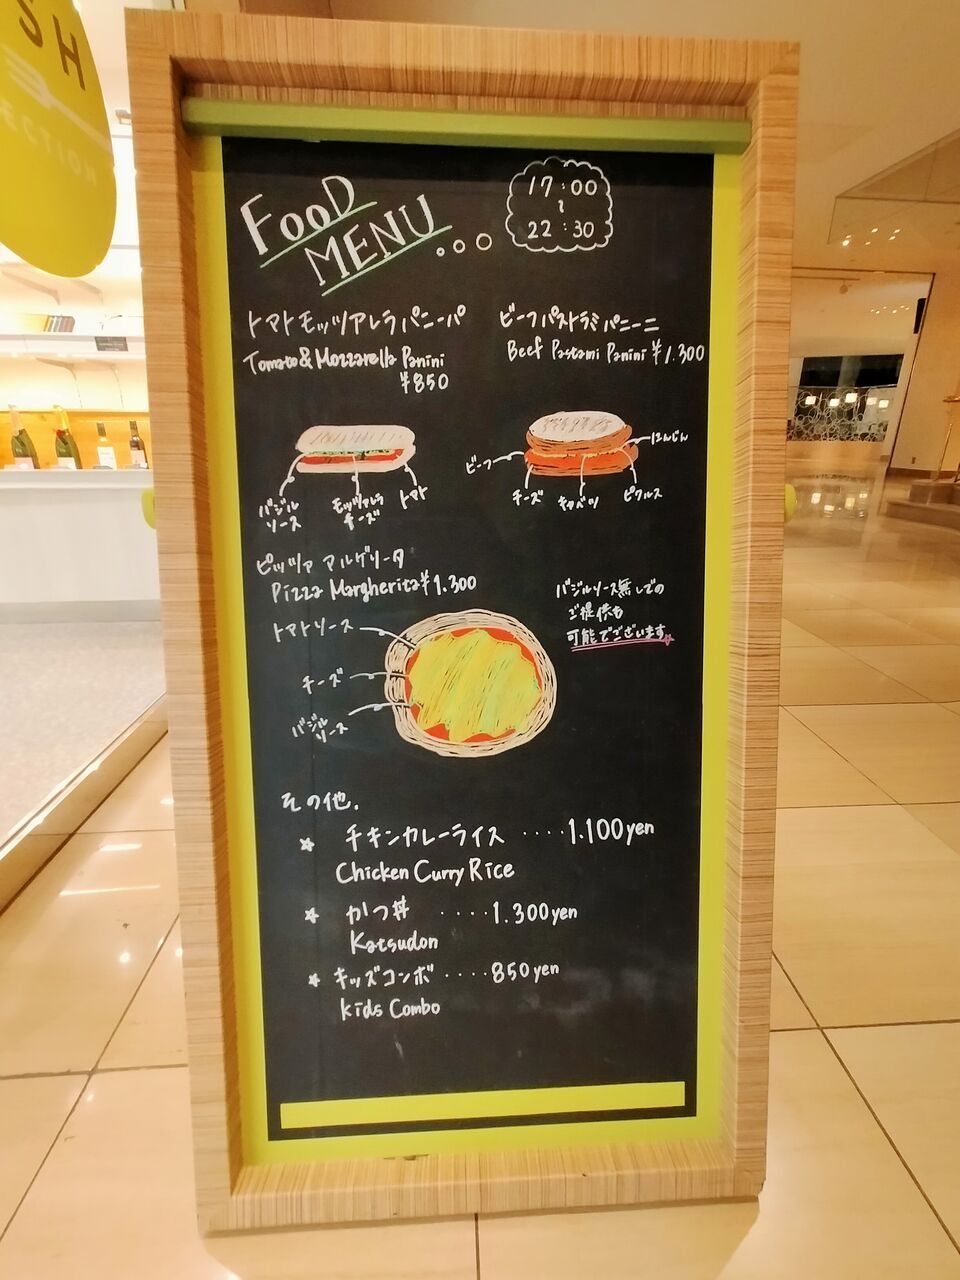 SH
ECTION
FooD
MENU...
17:00
~
22:30
トマトモッツアレラパニーパ
Tomato & Mozzarella Panini
¥850
ビーフパストラミパニーニ
Beef Pastami Panini ¥1.300
バジル
ソース
モッツアレラ
チーズ
トマト
ビーフ
チーズ
キャベツ
ピクルス
にんじん
ピッツァ マルゲリータ
Pizza Margherita ¥1.300
トマトソース
チーズ
バジル
ソース
バジルソース無しでの
ご提供も
可能でございます
その他.
★ チキンカレーライス ････1.100yen
Chicken Curry Rice
★ かつ丼 ････1.300yen
Katsudon
★ キッズコンボ ････850yen
kids Combo